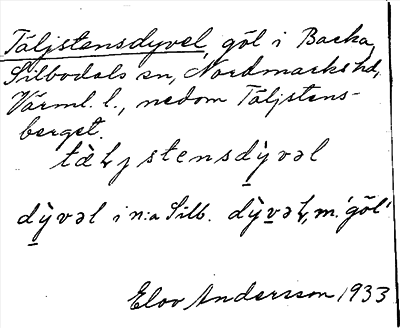 Täljstensdyvel, göl i Backa,
Silbodals sn, Nordmarks hd,
Värml. l., nedom Täljstens-
berget.
tὰɫjstensdỳ̠vəl
dỳ̠vəl i n:a Silb. dỳ̠vəɫ, m. 'göl'
Elov Andersson 1933